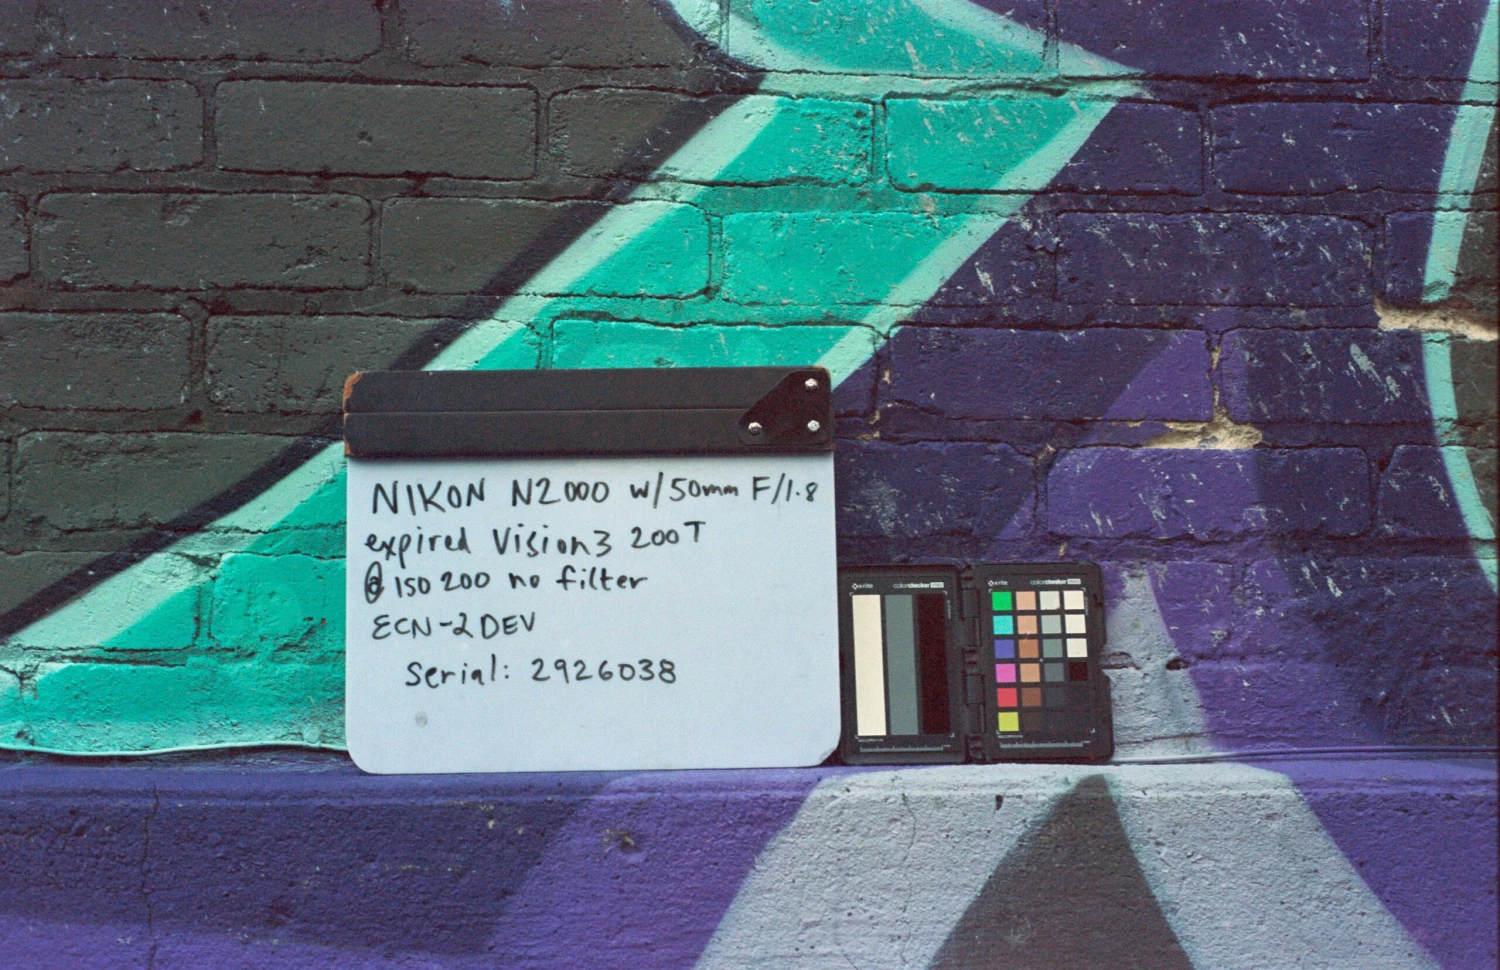 NIKON N2000 w/50mm F/1.8
expired Vision3 200T
@ ISO 200 no filter
ECN-2 DEV
Serial: 2926038
x-rite colorchecker
x-rite colorchecker